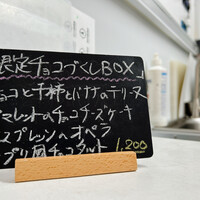 限定チョコづくしBOX
ョコと干柿とバナナのテリーヌ
マレットのチョコチーズケーキ
スプレッソのオペラ
プリ用チョコタルト
1,200